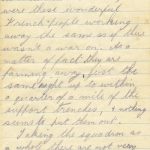 were these wonderful
French people working
away the same as if there
wasn't a war on. As a
matter of fact they are
farming away just the
same right up to within
a quarter of a mile of the
support trenches, & nothing
seems to put them out.
Taking the squadron as
a whole there are not very